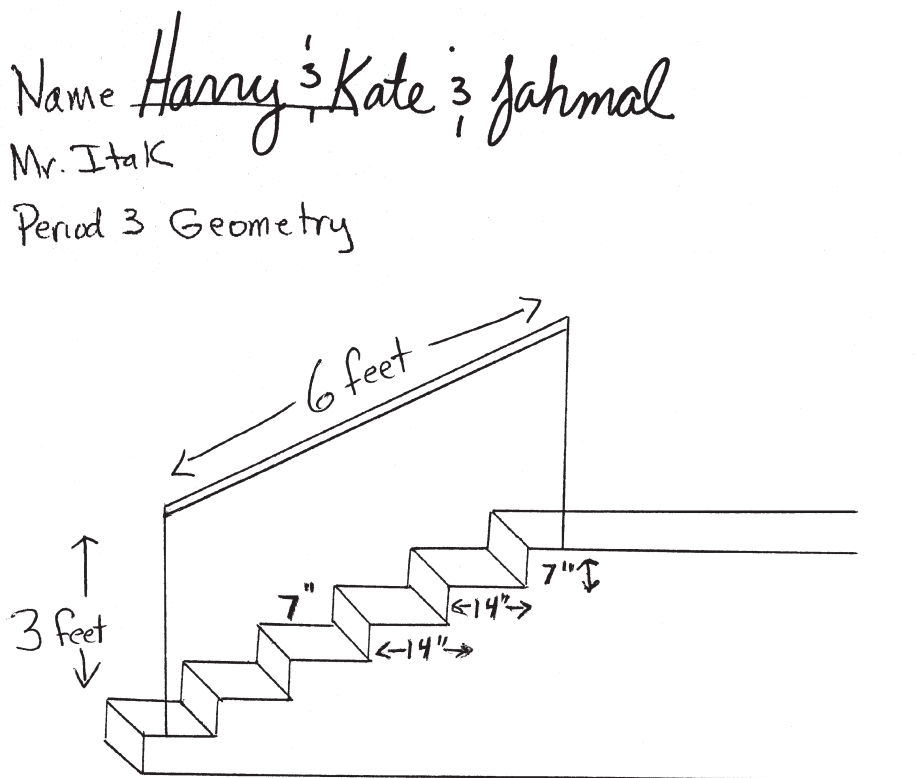 Name Harry & Kate & Jahmal
Mr. Itak
Period 3 Geometry
6 feet
3 feet
7"
7"
14"
14"